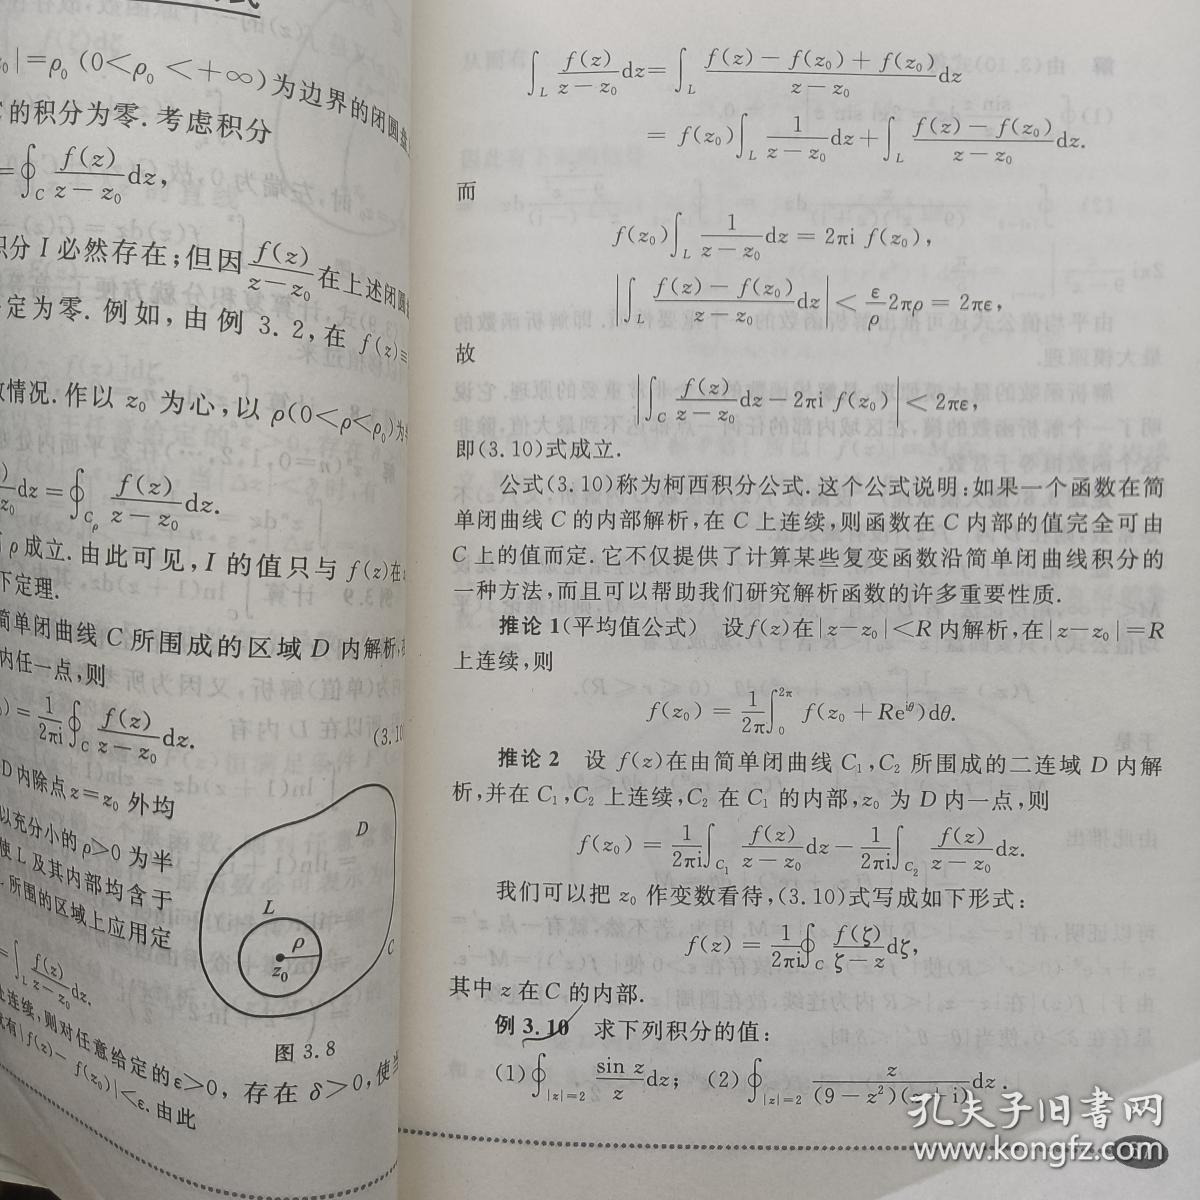 z₀|=ρ₀ (0<ρ₀<+∞)为边界的闭圆盘
的积分为零.考虑积分
=∮_C f(z)/(z-z₀) dz,
积分 I 必然存在;但因 f(z)/(z-z₀) 在上述闭圆
定为零. 例如,由例 3.2,在 f(z)≡
情况.作以 z₀ 为心,以 ρ(0<ρ<ρ₀)为
dz=∮_{C_ρ} f(z)/(z-z₀) dz.
ρ成立.由此可见,I 的值只与 f(z)在
下定理.
简单闭曲线 C 所围成的区域 D 内解析,
内任一点,则
)=1/(2πi)∮_C f(z)/(z-z₀) dz. (3.10
D内除点z=z₀ 外均
以充分小的ρ>0 为半
使L及其内部均含于
所围的区域上应用定
=∫_L f(z)/(z-z₀) dz.
上连续,则对任意给定的ε>0, 存在 δ>0,使当
就有|f(z)-f(z₀)|<ε.由此
D
L
ρ
z₀
C
图 3.8
∫_L f(z)/(z-z₀) dz=∫_L (f(z)-f(z₀)+f(z₀))/(z-z₀) dz
=f(z₀)∫_L 1/(z-z₀) dz+∫_L (f(z)-f(z₀))/(z-z₀) dz.
而
f(z₀)∫_L 1/(z-z₀) dz=2πi f(z₀),
|∫_L (f(z)-f(z₀))/(z-z₀) dz|<ε/ρ 2πρ=2πε,
故
|∫_C f(z)/(z-z₀) dz-2πi f(z₀)|<2πε,
即(3.10)式成立.
公式(3.10)称为柯西积分公式.这个公式说明:如果一个函数在简
单闭曲线 C 的内部解析,在 C 上连续,则函数在 C 内部的值完全可由
C 上的值而定.它不仅提供了计算某些复变函数沿简单闭曲线积分的
一种方法,而且可以帮助我们研究解析函数的许多重要性质.
推论 1(平均值公式) 设f(z)在|z-z₀|<R 内解析,在|z-z₀|=R
上连续,则
f(z₀)=1/(2π)∫₀^{2π} f(z₀+Re^{iθ})dθ.
推论 2 设 f(z)在由简单闭曲线 C₁,C₂ 所围成的二连域 D 内解
析,并在 C₁,C₂ 上连续,C₂ 在 C₁ 的内部,z₀ 为 D 内一点,则
f(z₀)=1/(2πi)∫_{C₁} f(z)/(z-z₀) dz-1/(2πi)∫_{C₂} f(z)/(z-z₀) dz.
我们可以把 z₀ 作变数看待,(3.10)式写成如下形式:
f(z)=1/(2πi)∮_C f(ζ)/(ζ-z) dζ,
其中 z 在 C 的内部.
例 3.10 求下列积分的值:
(1)∮_{|z|=2} sin z/z dz; (2)∮_{|z|=2} z/((9-z²)(z+i)) dz.
孔夫子旧书网
www.kongfz.com